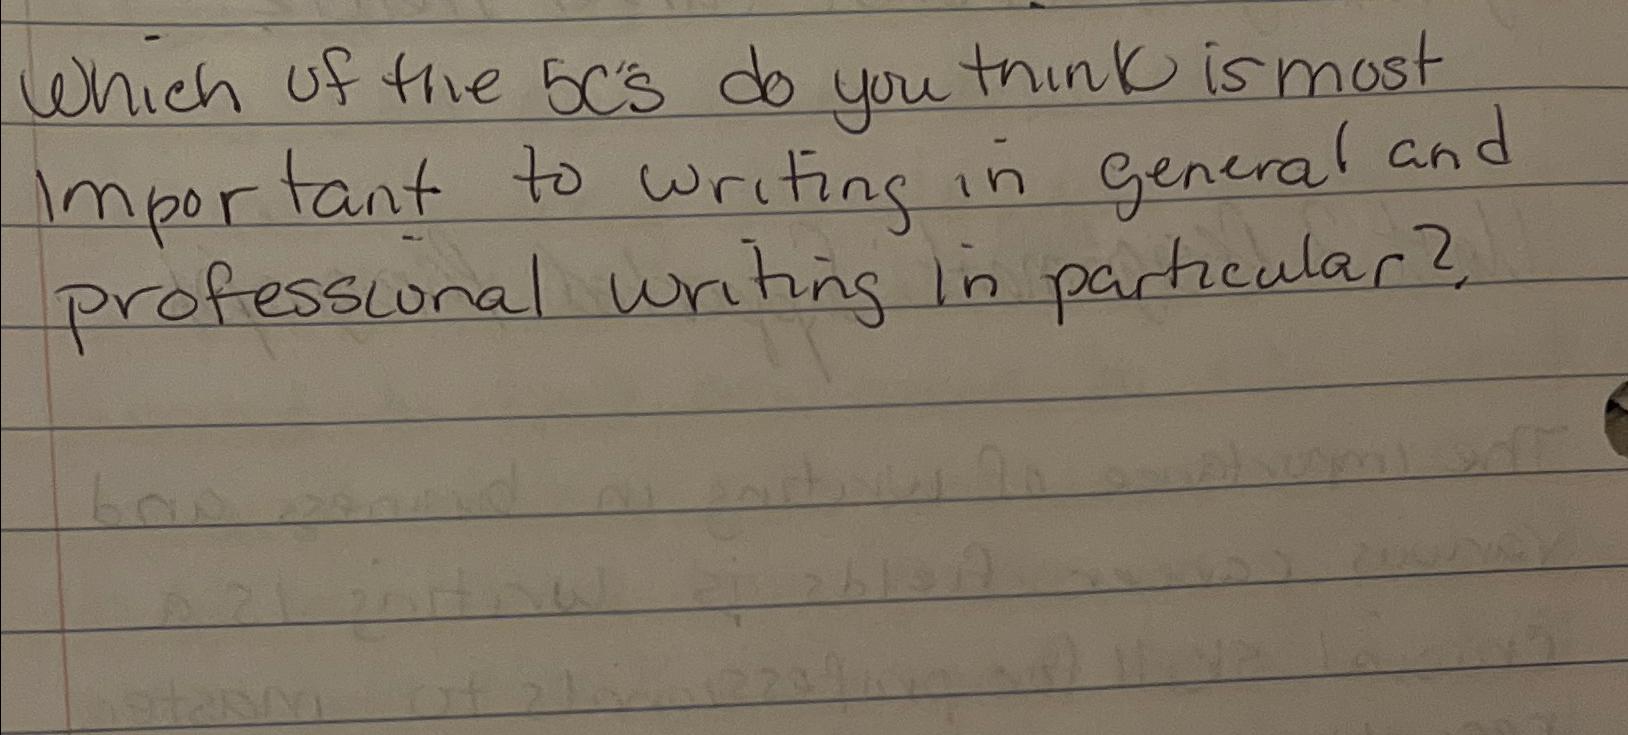 Which of the 5C's do you think is most
important to writing in general and
professional writing in particular?